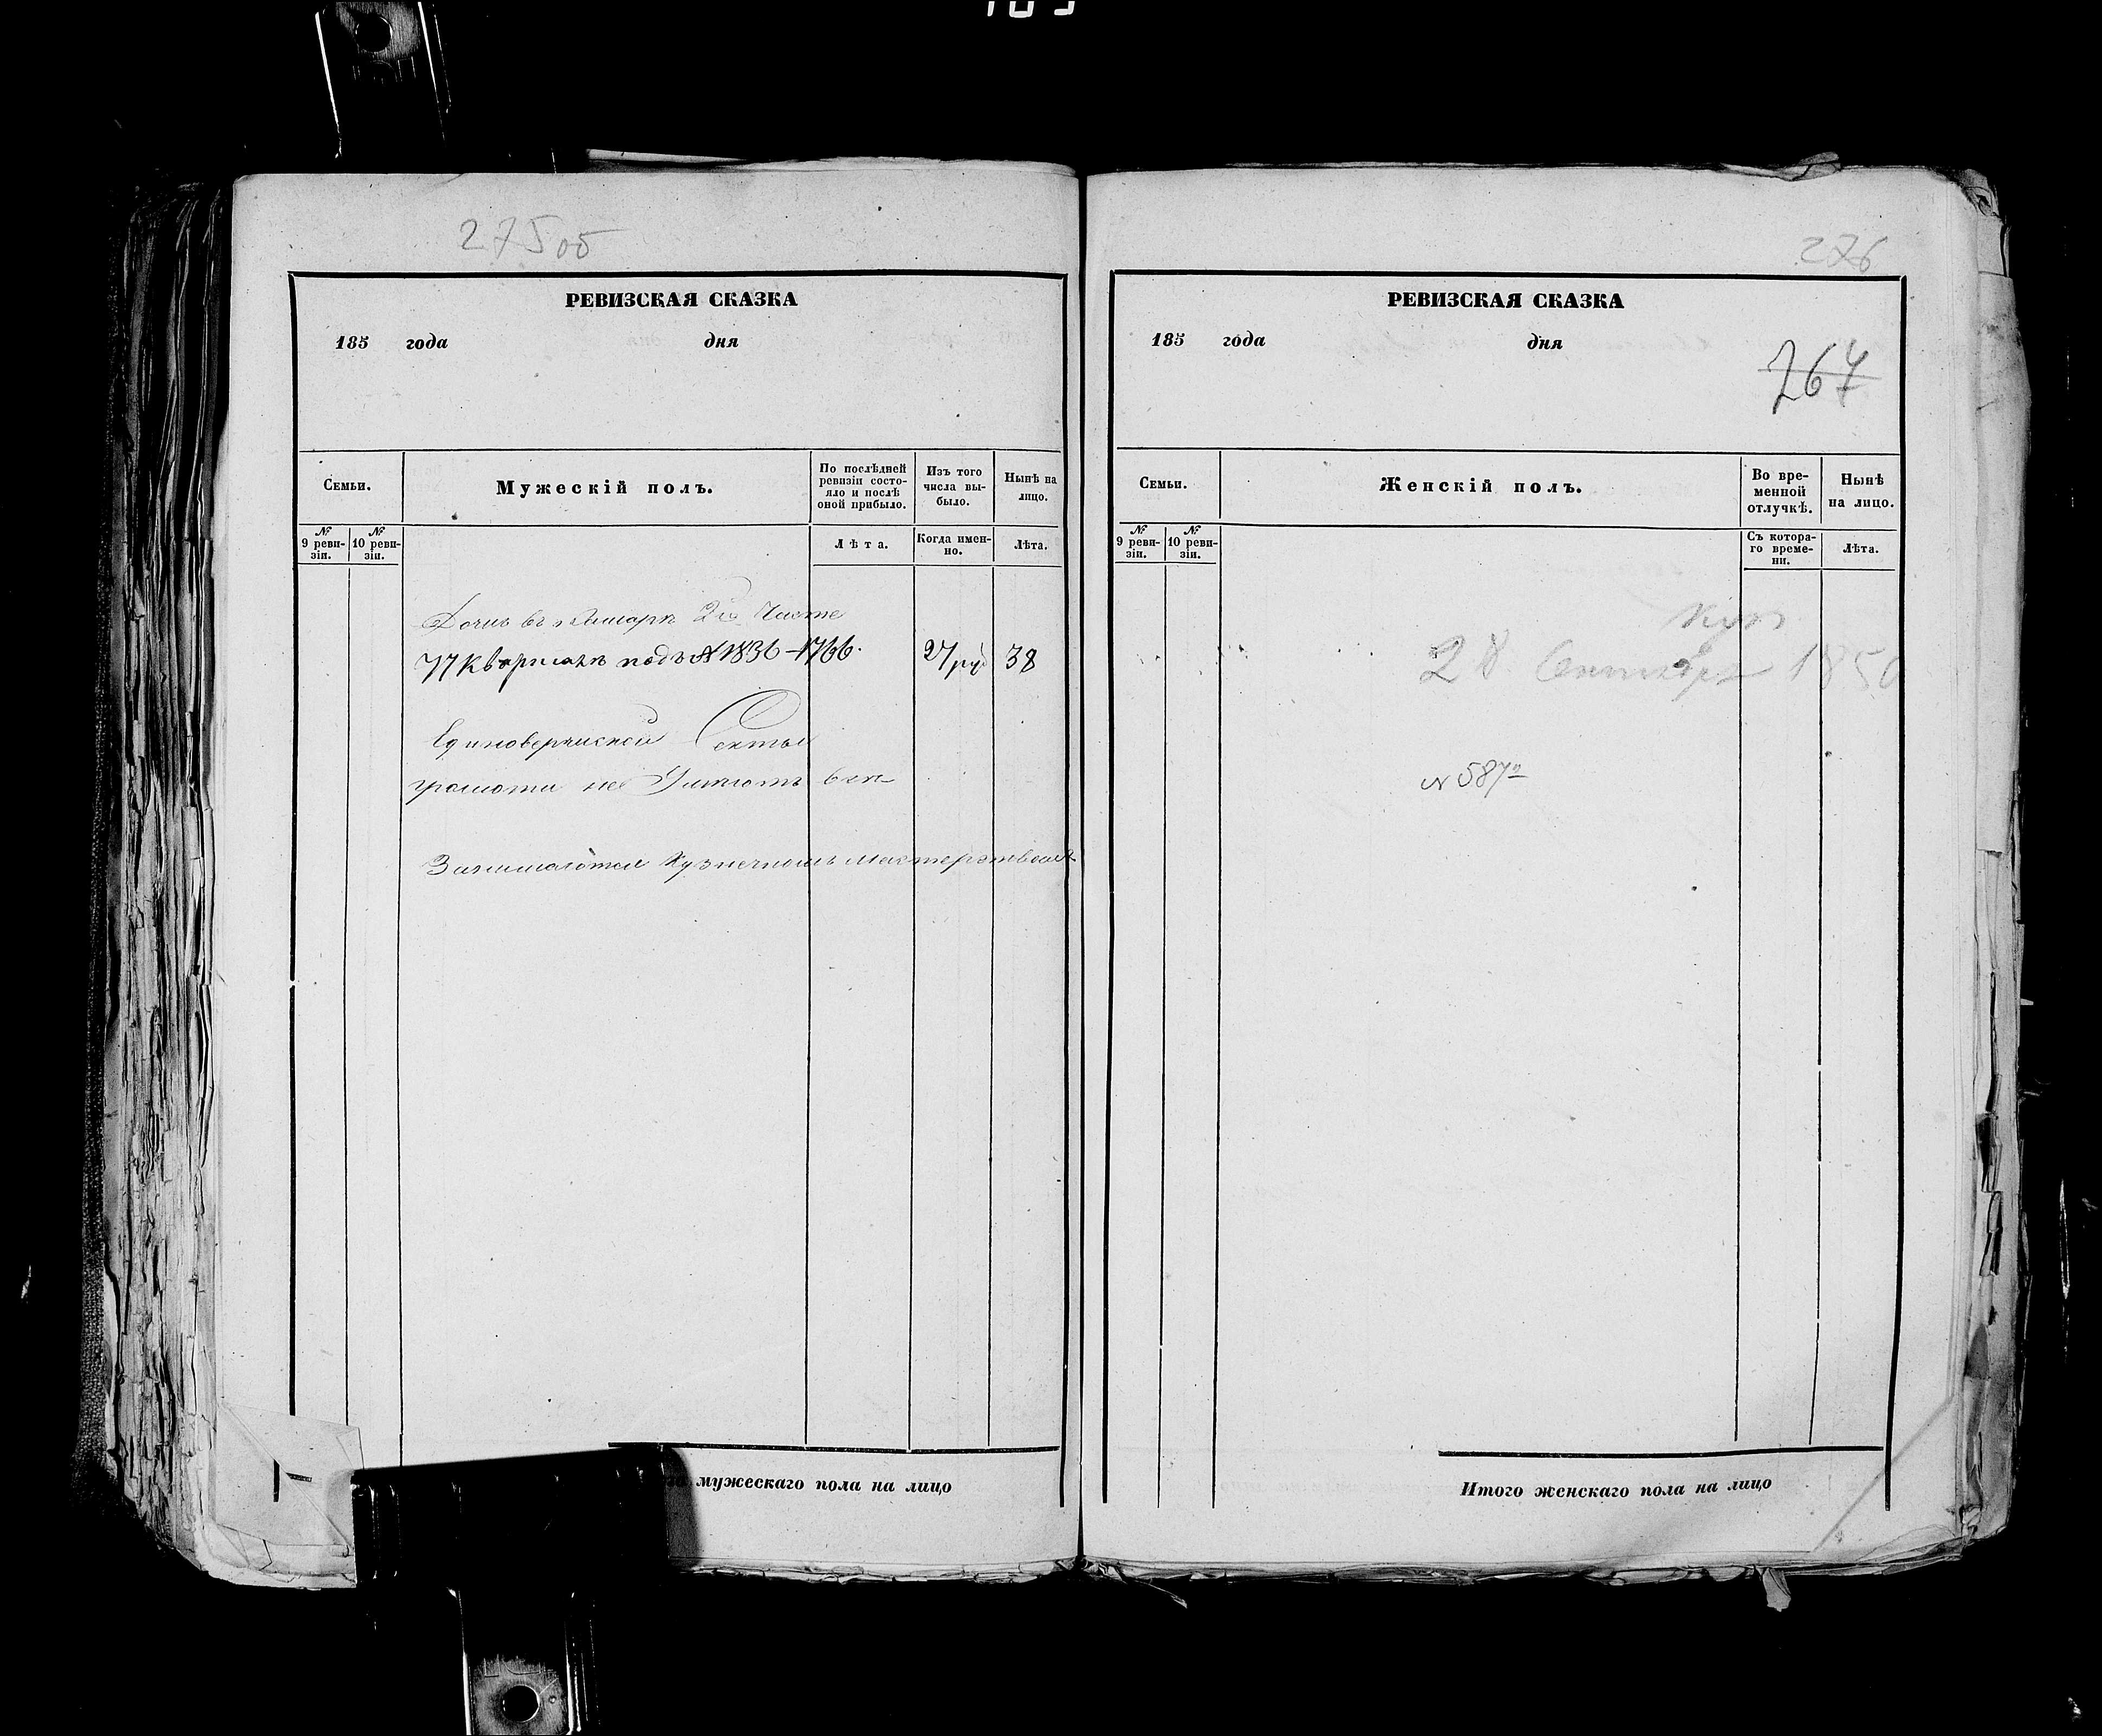 275об
РЕВИЗСКАЯ СКАЗКА
185 года дня
Семьи.
Мужескій полъ.
По послѣдней ревизіи состояло и послѣ оной прибыло.
Изъ того числа выбыло.
Нынѣ на лицо.
№ 9 ревизіи.
№ 10 ревизіи.
Лѣта.
Когда именно.
Лѣта.
Домъ въ 2й Части
77 Кварталѣ подъ № 1836 – 1766. 27 ру 38
Единоверческой Секты
грамоти не Умѣютъ
Занимаются Кузнечнымъ мастерствомъ
мужескаго пола на лицо
276
РЕВИЗСКАЯ СКАЗКА
185 года дня
764
Семьи.
Женскій полъ.
Во временной отлучкѣ.
Нынѣ на лицо.
№ 9 ревизіи.
№ 10 ревизіи.
Съ котораго времени.
Лѣта.
28 Сентября 1850
№ 587
Итого женскаго пола на лицо